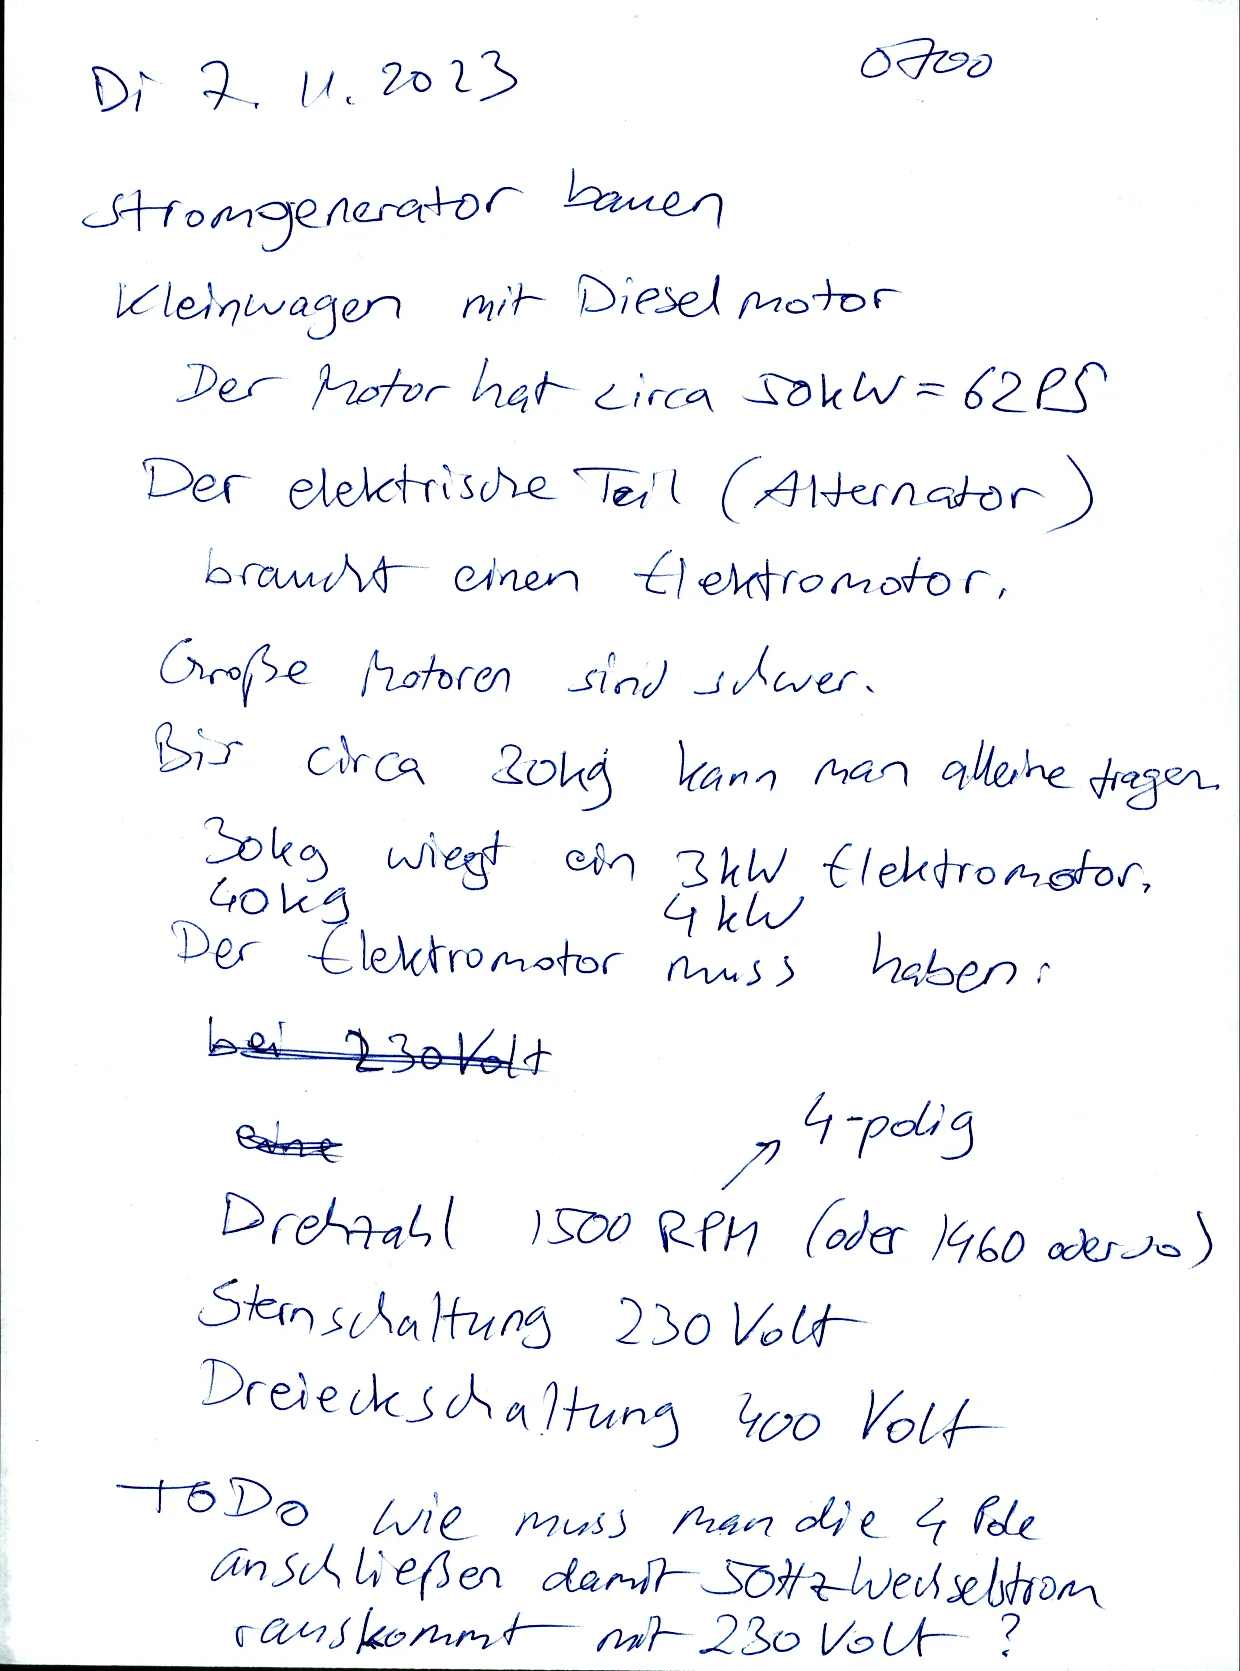 Di 7. 11. 2023 0700
Stromgenerator bauen
Kleinwagen mit Dieselmotor
Der Motor hat circa 50kW = 62PS
Der elektrische Teil (Alternator)
braucht einen Elektromotor.
Große Motoren sind schwer.
Bis circa 30kg kann man alleine tragen.
30kg wiegt ein 3kW Elektromotor.
40kg 4kW
Der Elektromotor muss haben:
bei 230Volt
eine
4-polig
Drehzahl 1500 RPM (oder 1460 oder so)
Sternschaltung 230 Volt
Dreieckschaltung 400 Volt
TODO Wie muss man die 4 Pole
anschließen damit 50Hz Wechselstrom
rauskommt mit 230 Volt ?